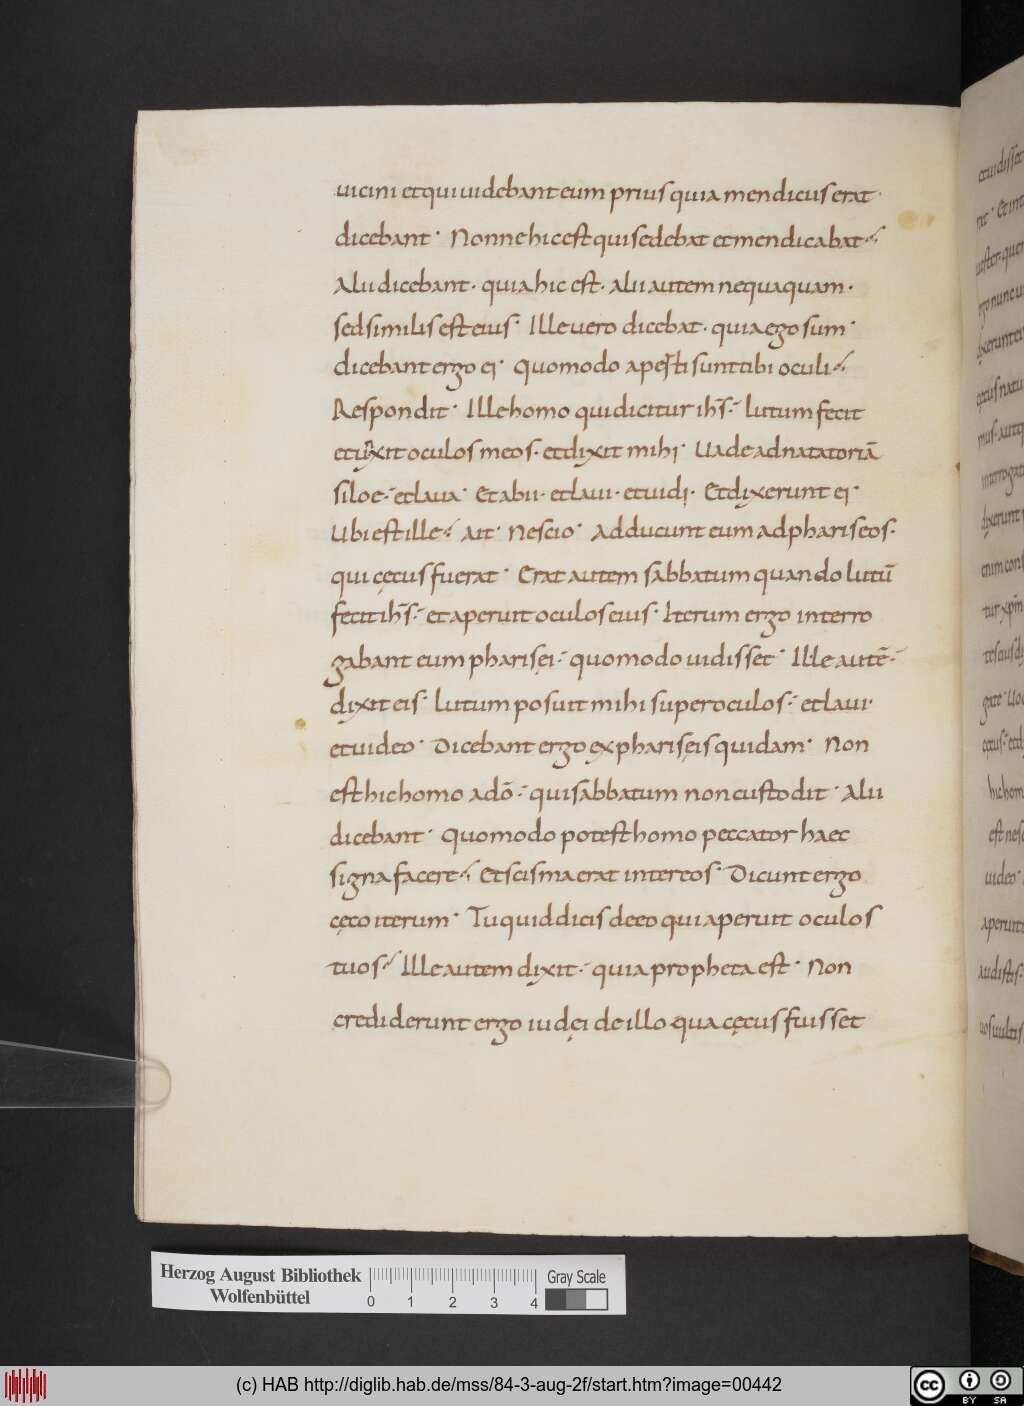 uicini et qui uidebant eum prius quia mendicus erat·
dicebant· Nonne hic est qui sedebat et mendicabat·
Alii dicebant· quia hic est· alii autem nequaquam·
sed similis est eius· Ille uero dicebat· quia ego sum·
dicebant ergo ei· Quomodo aperti sunt tibi oculi·
Respondit· Ille homo qui dicitur ihs̄· lutum fecit
et unxit oculos meos· et dixit mihi· Uade ad natatoriā
siloe· et laua· Et abii· et laui· et uidi· Et dixerunt ei·
Ubi est ille· Ait· Nescio· Adducunt eum ad phariseos·
qui cęcus fuerat· Erat autem sabbatum quando lutū
fecit ihs̄· et aperuit oculos eius· Iterum ergo interro
gabant eum pharisęi· quomodo uidisset· Ille autē·
dixit eis· lutum posuit mihi super oculos· et laui
et uideo· Dicebant ergo ex pharisęis quidam· Non
est hic homo a dō· qui sabbatum non custodit· Alii
dicebant· Quomodo potest homo peccator haec
signa facere· Et scisma erat inter eos· Dicunt ergo
cęco iterum· Tu quid dicis de eo qui aperuit oculos
tuos· Ille autem dixit· quia propheta est· Non
crediderunt ergo iudęi de illo qua cęcus fuisset
Herzog August Bibliothek
Wolfenbüttel
0 1 2 3 4
Gray Scale
(c) HAB http://diglib.hab.de/mss/84-3-aug-2f/start.htm?image=00442
cc BY SA